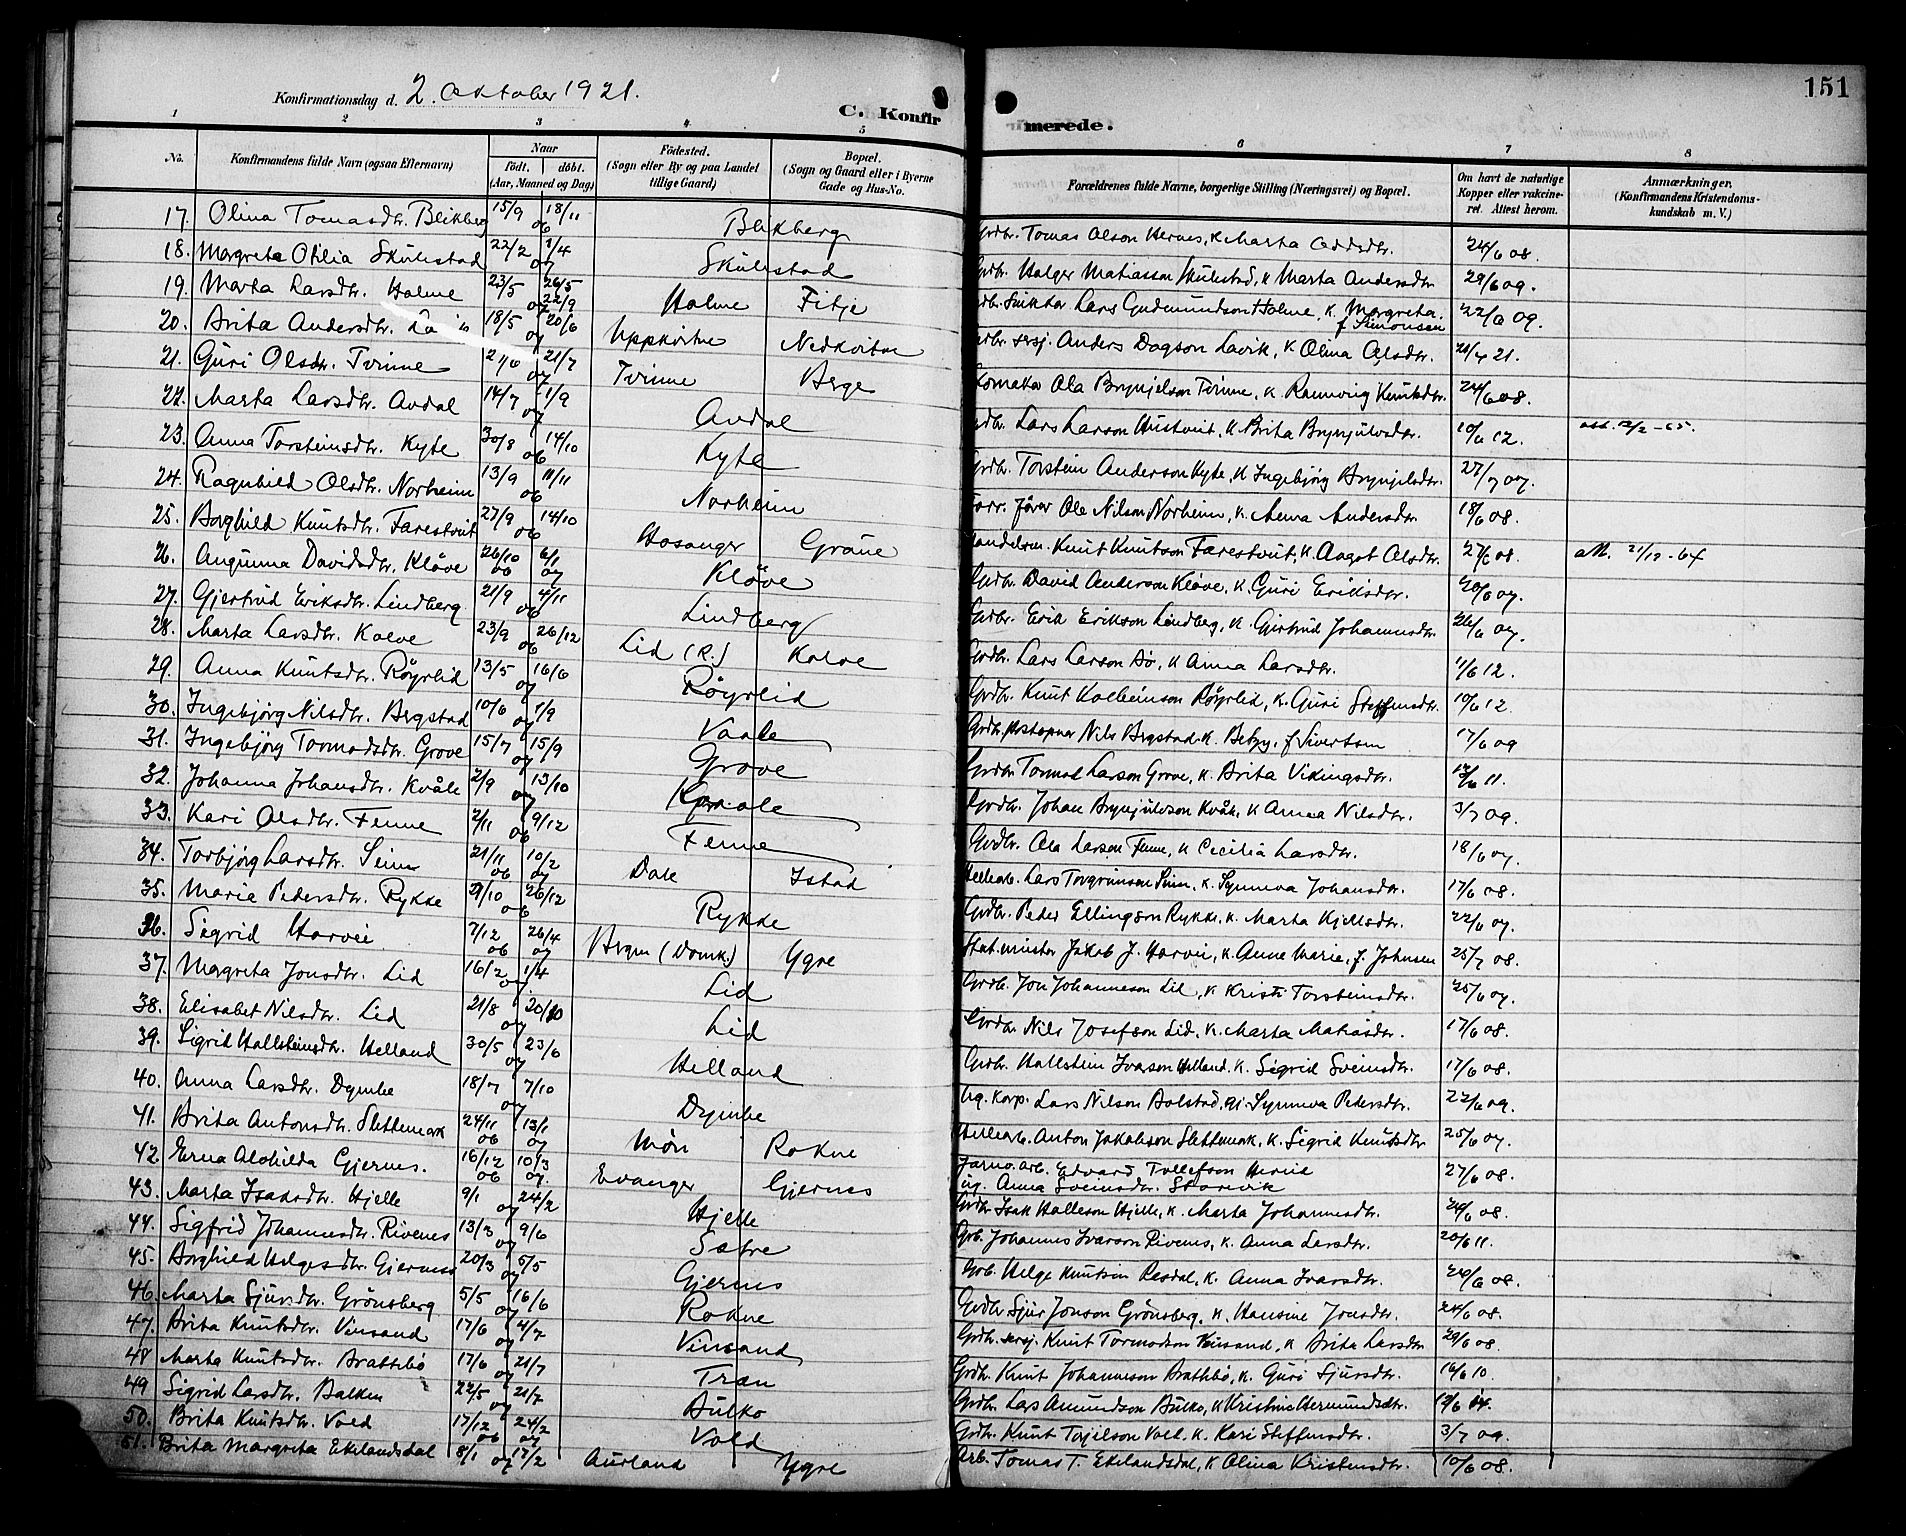 151
Konfirmationsdag d. 2. Oktober 1921.
C. Konfirmerede.
1 2 3 4 5 6 7 8
No. Konfirmandens fulde Navn (ogsaa Efternavn) Naar født. døbt. (Aar, Maaned og Dag) Fødested. (Sogn eller By og paa Landet tillige Gaard) Bopæl. (Sogn og Gaard eller i Byerne Gade og Hus-No. Forældrenes fulde Navne, borgerlige Stilling (Næringsvei) og Bopæl. Om havt de naturlige Kopper eller vakcineret. Attest herom. Anmærkninger. (Konfirmandens Kristendomskundskab m. V.)
17. Olina Tomasdtr. Blikberg 15/9 06 18/11 Blikberg Grdbr. Tomas Olson Hernes, k. Marta Oddsdtr. 24/6 08.
18. Margreta Otilia Skulestad 22/2 07 1/4 Skulestad Grdbr. Holger Matiasson Skulestad, k Marta Andersdtr 29/6 09.
19. Marta Larsdtr. Holme 23/5 07 26/5 22/9 Holme Fitje Snikkar Lars Gudmundson Holme, k. Margreta f. Simonsen 22/6 09.
20. Brita Andersdtr. 18/5 07 20/6 Uppkvitne Nedkvitne sersj. Anders Dagson Lavik, k Olina Olsdtr. 21.
21. Guri Olsdtr. Tvinne 07 21/7 Tvinne Berge Ola Brynjelson Tvinne, k. Rannveig Knutsdtr. 24/6 08.
22. Marta Larsdtr. Avdal 14/7 07 1/9 Avdal Lars Larson Hustveit, k. Brita Brynjulvsdtr. 10/6 12.
23. Anna Torsteinsdtr. Kyte 30/8 06 14/10 Kyte Grdbr. Torstein Anderson Kyte, k Ingebjørg Brynjelsdtr. 27/7 07.
24. Ragnhild Olsdtr. Norheim 13/9 06 11/11 Norheim Ole Nilson Norheim, k. Anna Andersdtr 18/6 08.
25. Borghild Knutsdtr. Farestveit 27/9 06 14/10 Hosanger Gråue Handelsm. Knut Knutson Farestveit, k. Aagot Olsdtr. 27/6 08. att. 21/12-64
26. Angunna Davidsdtr. Kløve 26/10 06 6/1 07 Kløve Grdbr. David Anderson Kløve, k. Guri Eriksdtr. 20/6 07.
27. Gjertrud Eriksdtr. Lindberg 21/9 06 4/11 Lindberg Grdbr. Erik Erikson Lindberg, k. Gjertrud Johannesdtr. 26/6 07.
28. Marta Larsdtr. Kolve 23/9 06 26/12 Lid (R.) Kolve Grdbr. Lars Larson Bø, k Anna Larsdtr. 1/6 12.
29. Anna Knutsdtr. Røyrlid 13/5 07 16/6 Røyrlid Grdbr. Knut Kolbeinson Røyrlid, k. Guri Steffensdtr. 10/6 12.
30. Ingebjørg Nilsdtr. Bergstad 10/6 07 1/9 Vaale Grdbr. Postopnar Nils Bergstad k. Betzy, f Sivertsen 17/6 09
31. Ingebjørg Tormodsdtr. Grove 15/7 07 15/9 Grove Grdbr Tormod Larson Grove, k. Brita Vikingsdtr. 11.
32. Johanna Johansdtr. Kvåle 2/9 07 13/10 Kvaale Grdbr. Johan Brynjulvson Kvåle, k Anna Nilsdtr. 3/7 09.
33. Kari Olsdtr. Fenne 2/11 06 9/12 Fenne Grdbr. Ola Larson Fenne, k Cecilia Larsdtr. 18/6 07.
34. Torbjørg Larsdtr. Seim 21/11 06 10/2 07 Dale Istad Lars Torgrimson Seim, k. Synneva Johansdtr. 17/6 08.
35. Maria Pedersdtr. Rykke 9/10 06 26/12 Rykke Grdbr. Peder Ellingson Rykke, k. Marta Kjellsdtr. 22/6 07.
36. Sigrid Horvei 7/12 06 26/4 07 Bergen (Domk.) Ygre Jakob J. Horvei, k. Anne Marie, f. Johnsen 25/7 08.
37. Margreta Jonsdtr. Lid 16/2 07 1/4 Lid Grdbr. Jon Johanneson Lid, k Kristi Torsteinsdtr. 25/6 07.
38. Elisabet Nilsdtr. Lid 21/8 07 20/10 Lid Grdbr. Nils Josefson Lid, k. Marta Matiasdtr. 17/6 08.
39. Sigrid Hallsteinsdtr. Helland 30/5 07 23/6 Helland Grdbr. Hallstein Ivarson Helland, k. Sigrid Sveinsdtr. 17/6 08.
40. Anna Larsdtr. Dymbe 18/7 07 7/10 Dymbe Ug. Korp. Lars Nilson Bolstad, gj. Synneva Pedersdtr. 22/6 09.
41. Brita Antonsdtr. Slettemark 24/11 06 13/1 07 Møn Rokne Anton Jakobson Slettemark, k. Sigrid Knutsdtr 25/6 07.
42. Erna Alohilda Gjernes. 16/12 06 10/3 07. Evanger Gjernes Jarnv. arb. Edvard Tollefson ug. Anna Sveinsdtr. Storvik 27/6 08.
43. Marta Isaksdtr. Hjelle 9/1 07 24/2 Hjelle Grdbr Isak Halleson Hjelle, k. Marta Johannesdtr. 08.
44. Sigfrid Johannesdtr. Rivenes 13/3 07 9/6 Sætre Grb. Johannes Ivarson Rivenes, k. Anna Larsdtr. 20/6 11.
45. Borghild Helgesdtr. Gjernes 20/3 07 5/5 Gjernes Grb. Helge Knutson Resdal, k. Anna Ivarsdtr. 08.
46. Marta Sjursdtr. Grønsberg 5/5 07 16/6 Rokne Grdbr Sjur Jonson Grønsberg, k. Hansine Jonsdtr. 24/6 08.
47. Brita Knutsdtr. Vinsand 17/6 07 4/7 Vinsand Grdbr. sersj. Knut Tormodson Vinsand, k Brita Larsdtr 29/6 08.
48 Marta Knutsdtr. Brattebø 17/6 07 21/7 Træn Grdbr. Knut Johanneson Brattebø, k. Guri Sjursdtr. 16/6 10.
49 Sigrid Larsdtr. Balken 22/5 07 21/7 Bulko Grdbr. Lars Amundson Bulko, k Kristine Hermundsdtr. 14.
50. Brita Knutsdtr. Vold 17/12 06 24/2 07 Vold Grdbr. Knut Torjelson Voll k. Kari Steffensdtr. 3/7 09.
51. Brita Margreta Ekelandsdal 8/1 07 17/2 Aurland Ygre Arb. Tomas T. Ekelandsdal, k Olina Kristensdtr. 10/6 08.